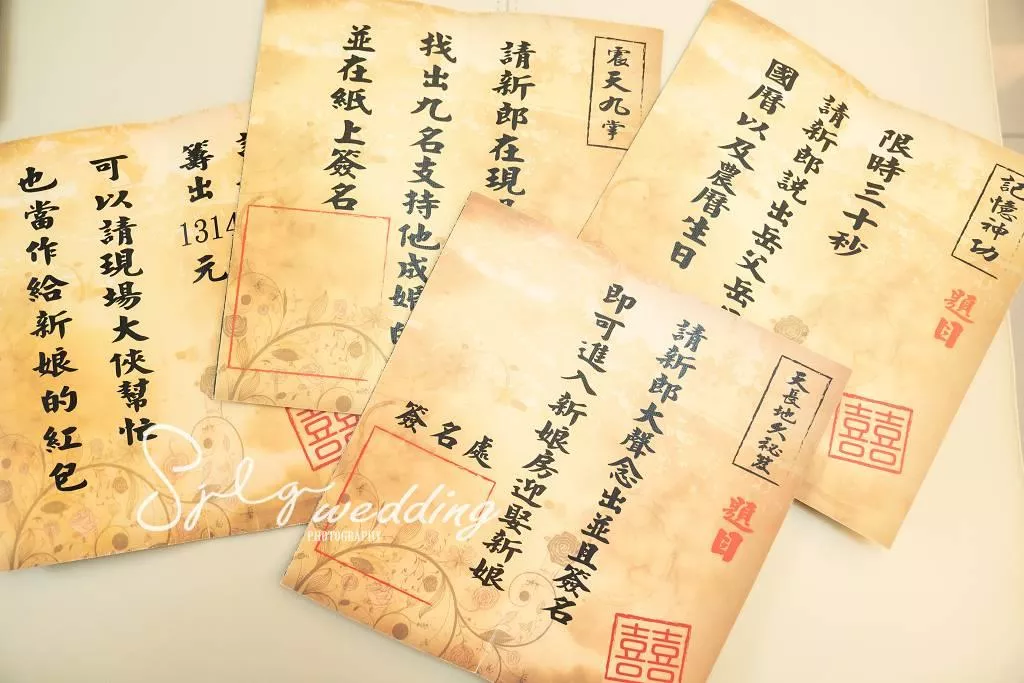 籌出
1314
元
可以請現場大俠幫忙
也當作給新娘的紅包
震天九掌
請新郎在現
找出九名支持他成婚的
並在紙上簽名
記憶神功
題目
限時三十秒
請新郎說出岳父岳
國曆以及農曆生日
囍
天長地久秘笈
題目
請新郎大聲念出並且簽名
即可進入新娘房迎娶新娘
簽名處
囍
囍
Sylg wedding
PHOTOGRAPHY